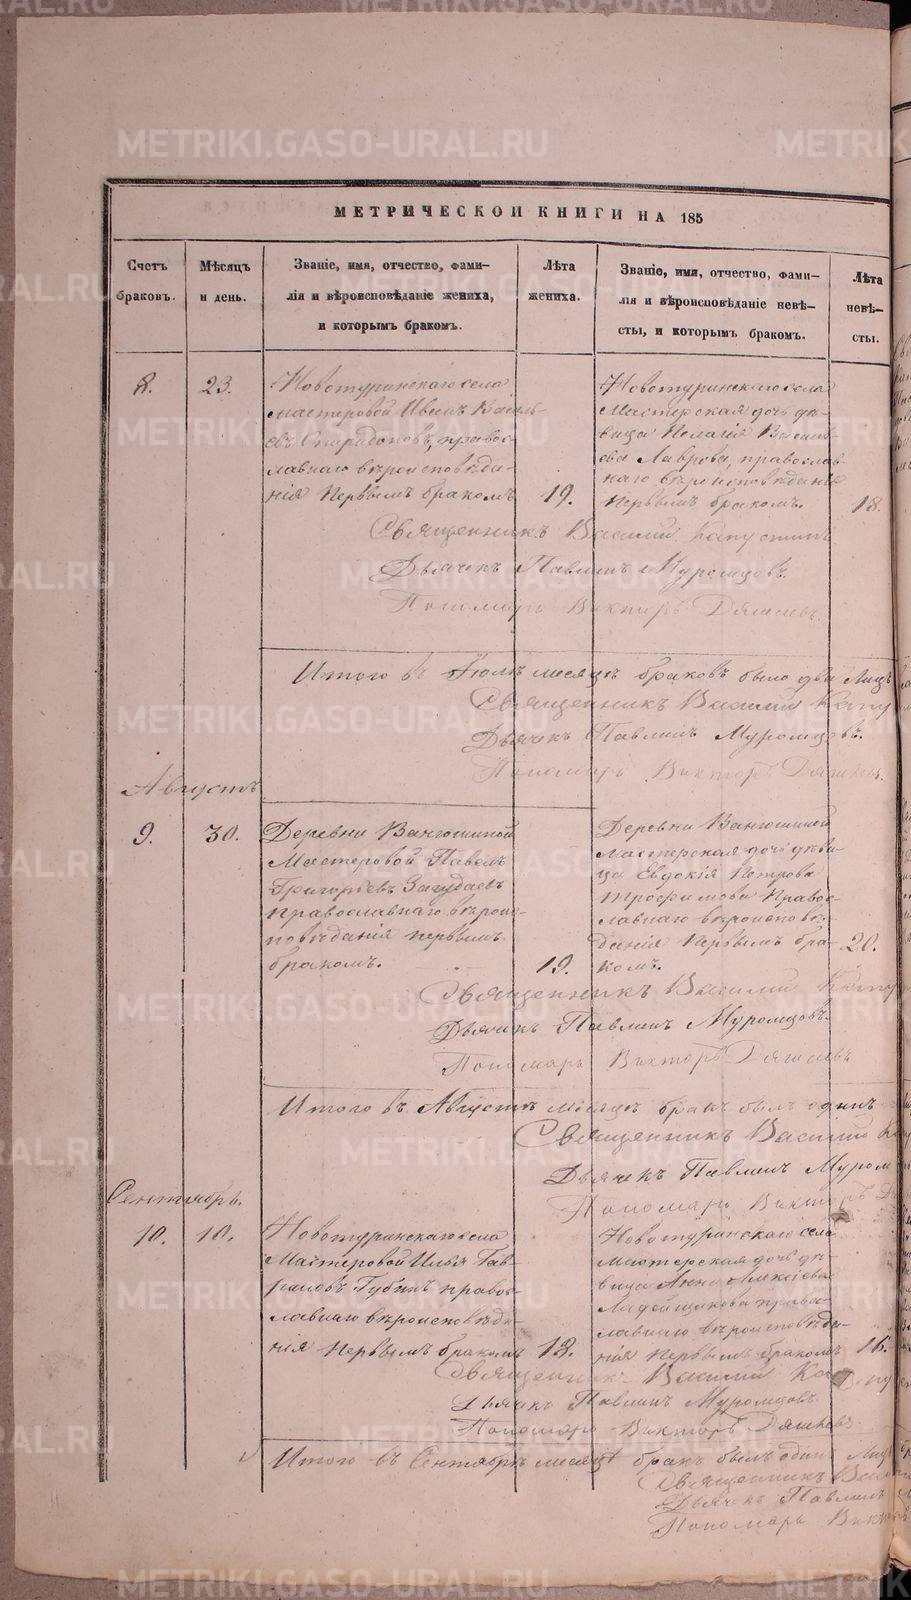 МЕТРИЧЕСКОИ КНИГИ НА 185
Счетъ
браковъ.
Мѣсяцъ
и день.
Званіе, имя, отчество, фами-
лія и вѣроисповѣданіе жениха,
и которымъ бракомъ.
Лѣта
жениха.
Званіе, имя, отчество, фами-
лія и вѣроисповѣданіе невѣ-
сты, и которымъ бракомъ.
Лѣта
невѣ-
сты.
8.
23.
Новотуринскаго села
мастеровой Иванъ Василь-
евъ Спиридоновъ, право-
славнаго вѣроисповѣда-
нія первымъ бракомъ
19.
Новотуринскаго села
Мастерская дочь дѣ-
вица Пелагія Василь-
ева Лаврова, православ-
наго вѣроисповѣданія
первымъ бракомъ.
18.
Священникъ Василій Капустинъ
Дьячекъ Павлинъ Муромцовъ.
Пономарь Викторъ Дягилевъ.
Итого въ Іюлѣ месяцѣ браковъ было два Лицъ
Священникъ Василій Капу
Дьячекъ Павлинъ Муромцовъ.
Пономарь Викторъ Дягилевъ.
Августъ
9.
30.
Деревни Ванюшиной
Мастеровой Павелъ
Григорьевъ Загудаевъ
православнаго вѣроис-
повѣданія первымъ
бракомъ.
19.
Деревни Ванюшиной
мастерская дочь дѣви-
ца Евдокія Петрова
Трофимова Правос-
лавнаго вѣроисповѣ-
данія первымъ бра-
комъ.
20.
Священникъ Василій Капу
Дьячекъ Павлинъ Муромцовъ.
Пономарь Викторъ Дягилевъ
Итого въ Августѣ месяцѣ бракъ былъ одинъ
Священникъ Василій К
Дьячекъ Павлинъ Муром
Пономарь Викторъ Д
Сентябрь.
10.
18.
Новотуринскаго села
Мастеровой Илья Гав-
риловъ Губинъ право-
славнаго вѣроисповѣда-
нія первымъ бракомъ
18.
Новотуринскаго села
мастерская дочь дѣ-
вица Анна Алексіева
Ладейщикова право-
славнаго вѣроисповѣда-
нія первымъ бракомъ
16.
Священникъ Василій Капу
Дьячекъ Павлинъ Муромцовъ
Пономарь Викторъ Дягилевъ
Итого въ Сентябрѣ месяцѣ бракъ былъ одинъ Лиц
Священникъ Васил
Дьячекъ Павлинъ
Пономарь Викт
METRIKI.GASO-URAL.RU